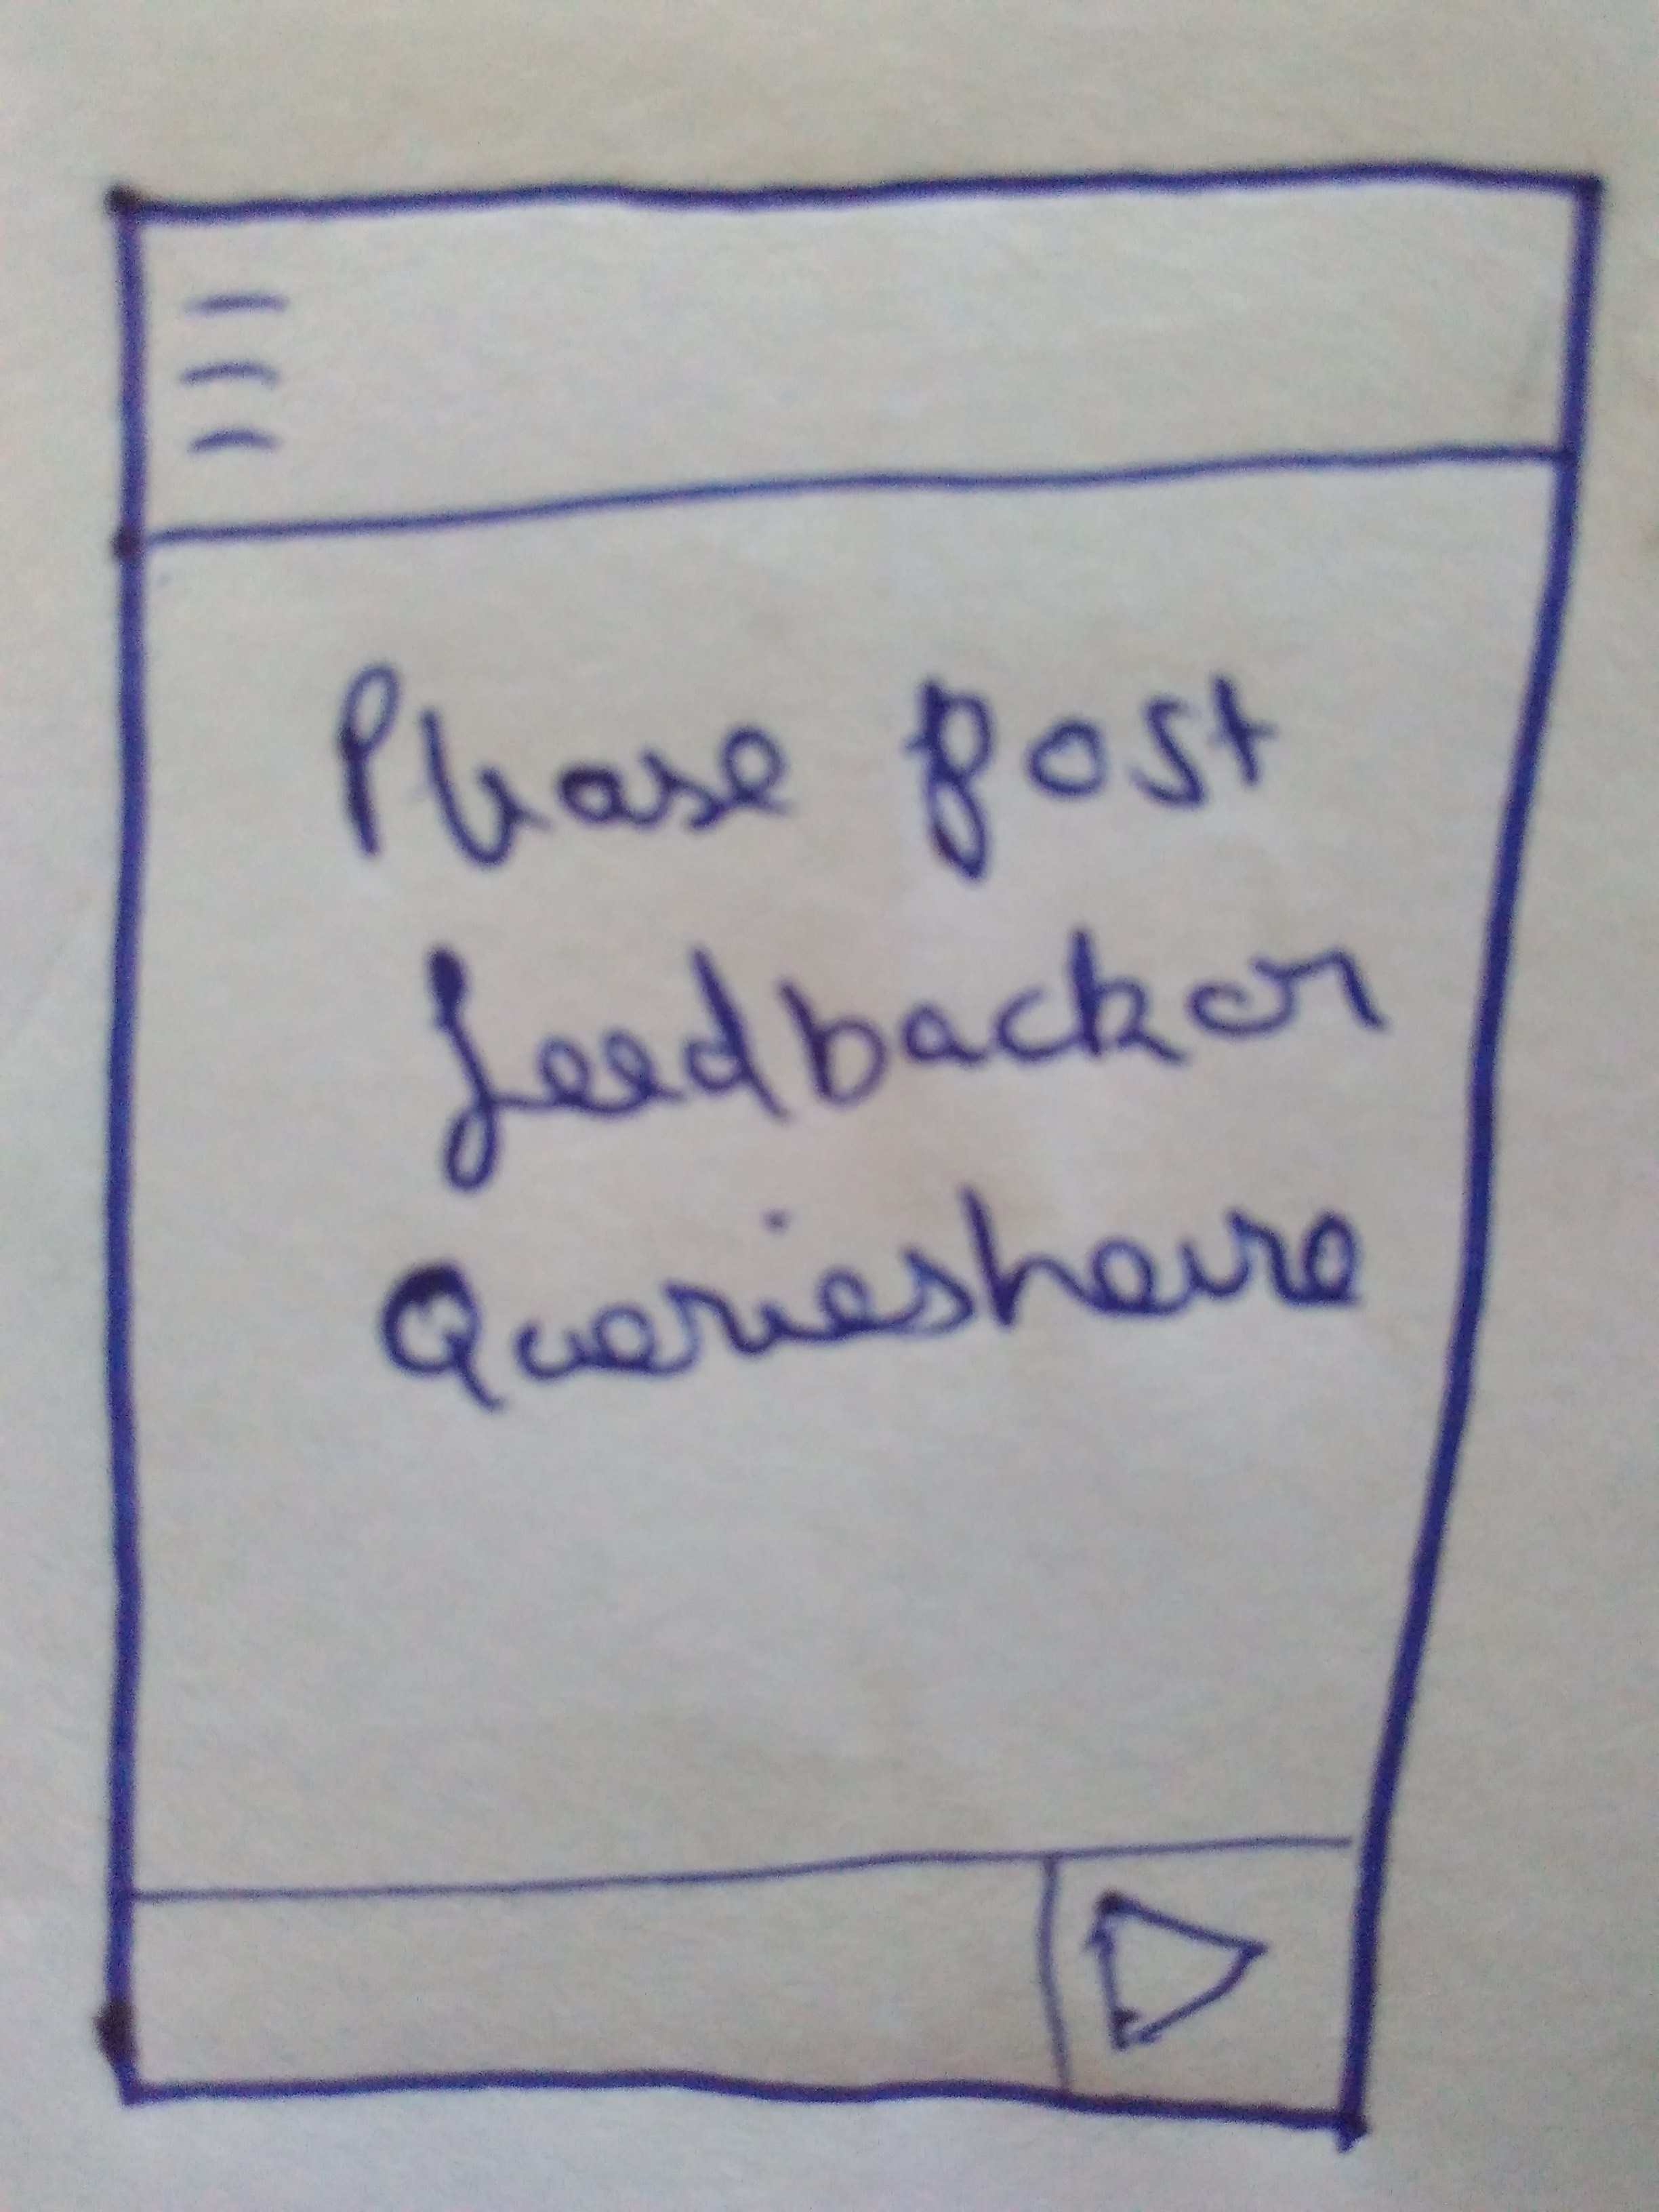 Please post
feedback or
Queries here